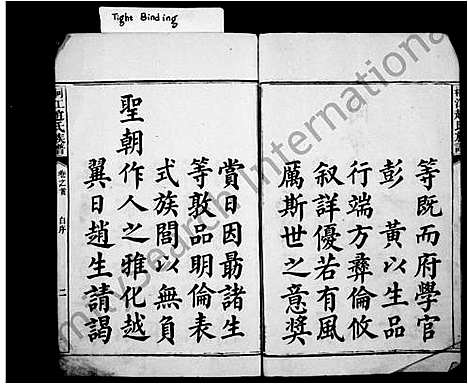 Tight Binding
等既而府學官
彭　黃以生品
行端方彝倫攸
敘詳優若有風
厲斯世之意獎
賞日因勗諸生
等敦品明倫表
式族閭以無負
聖朝作人之雅化越
翼日趙生請謁
桐江趙氏族譜
卷之首
自序
二
FamilySearch International